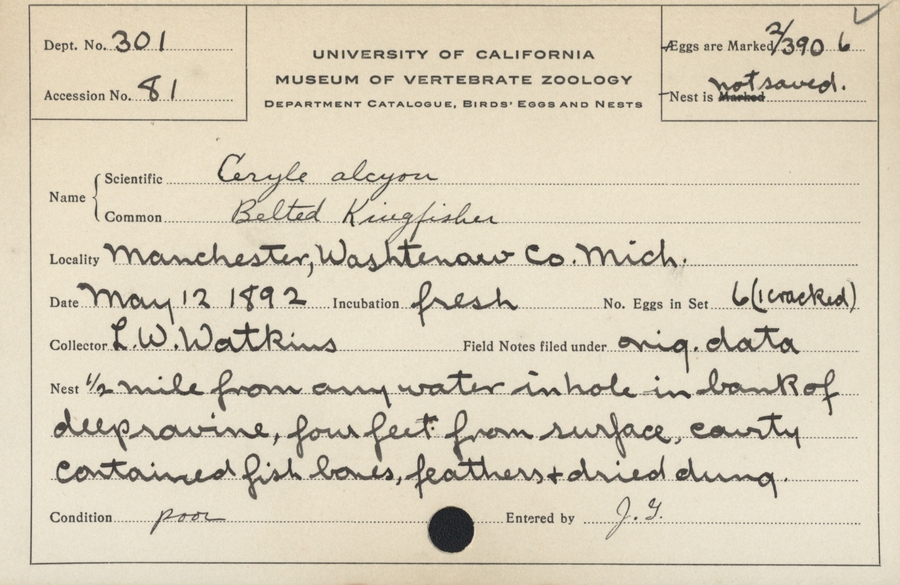 Dept. No. 301
Accession No. 81
UNIVERSITY OF CALIFORNIA
MUSEUM OF VERTEBRATE ZOOLOGY
DEPARTMENT CATALOGUE, BIRDS' EGGS AND NESTS
Eggs are Marked 2/390 6
Nest is Marked not saved.
Name
Scientific Ceryle alcyon
Common Belted Kingfisher
Locality Manchester, Washtenaw Co. Mich.
Date May 12 1892 Incubation fresh No. Eggs in Set 6 (1 cracked)
Collector L. W. Watkins Field Notes filed under orig. data
Nest 1/2 mile from any water in hole in bank of
deep ravine, four feet from surface, cavity
contained fish bones, feathers + dried dung.
Condition poor Entered by J. G.